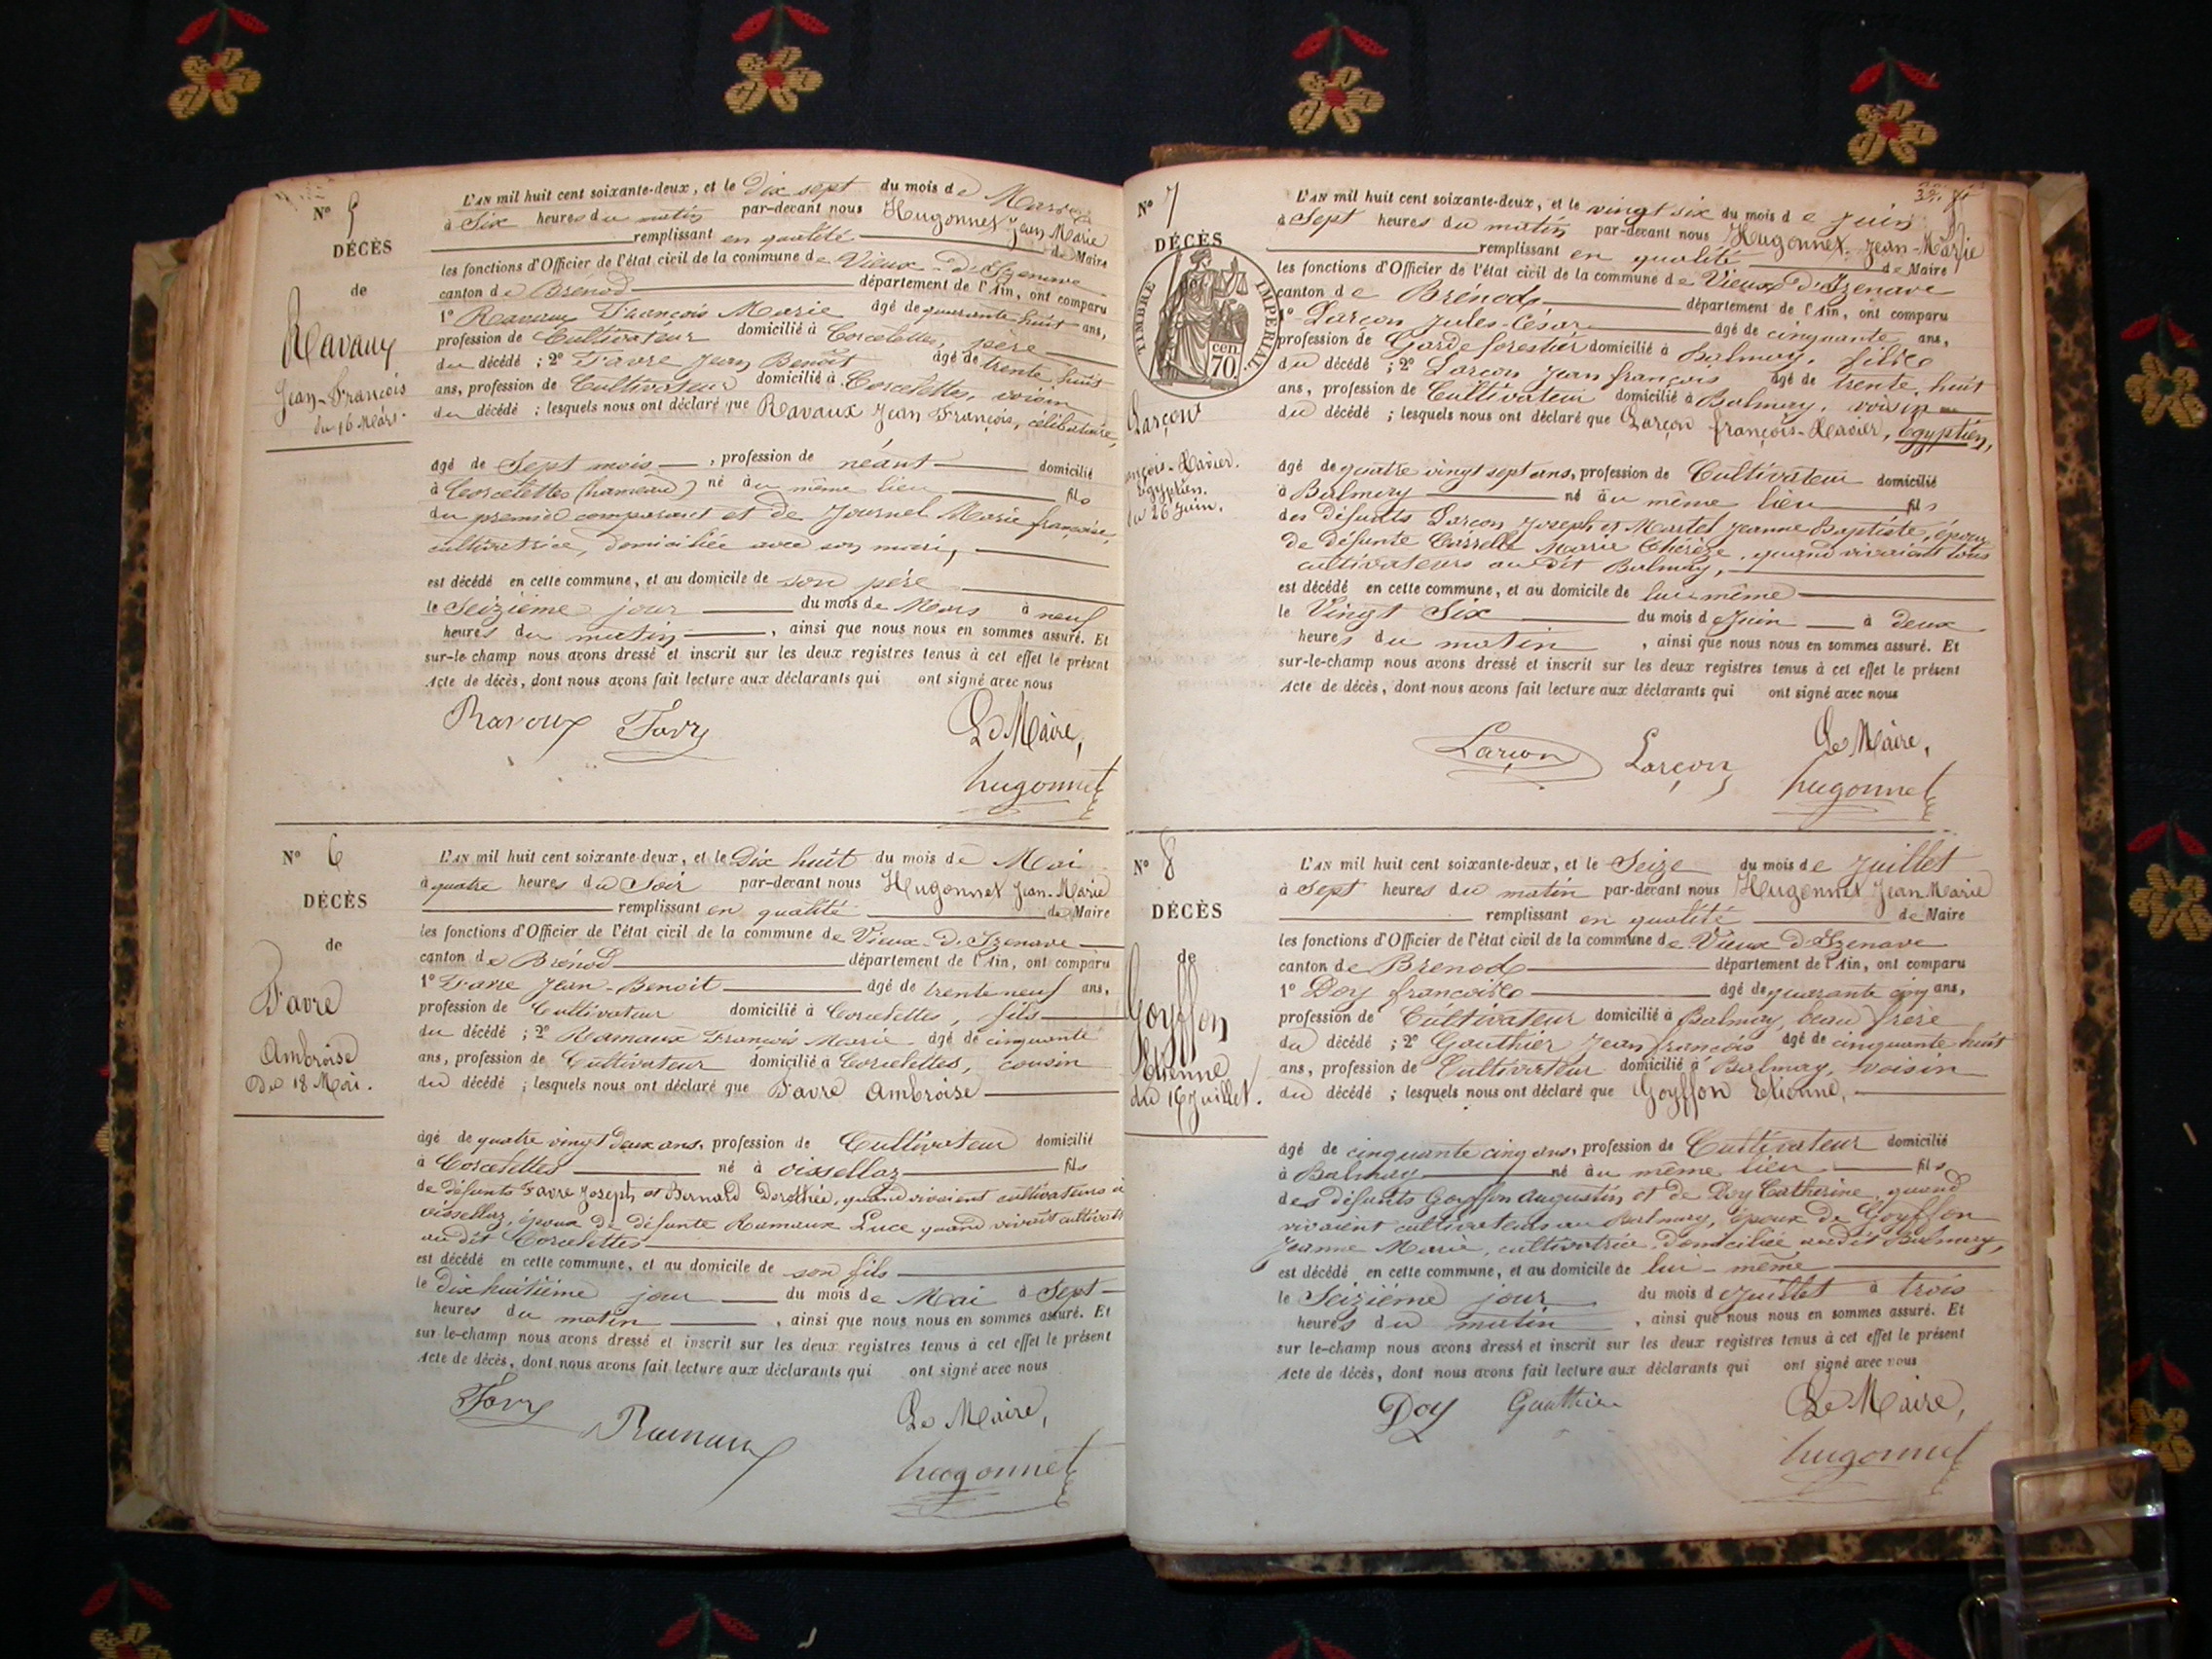 N° 5
DÉCÈS
de
Ravaux
Jean-François
du 16 Mars.
L'AN mil huit cent soixante-deux, et le Dix sept du mois de Mars
à Six heures du matin par-devant nous Hugonnet Jean Marie
remplissant en qualité de Maire
les fonctions d'Officier de l'état civil de la commune de Vieux-d'Izenave
canton de Brénod département de l'Ain, ont comparu
1° Ravaux François Marie âgé de quarante huit ans,
profession de Cultivateur domicilié à Corcelettes, père
du décédé ; 2° Favre Jean Benoît âgé de trente huit
ans, profession de Cultivateur domicilié à Corcelettes, voisin
du décédé ; lesquels nous ont déclaré que Ravaux Jean François, célibataire,
âgé de Sept mois, profession de néant domicilié
à Corcelettes (hameau) né au même lieu fils
du premier comparant et de Journet Marie françoise,
cultivatrice, domiciliée avec son mari,
est décédé en cette commune, et au domicile de son père
le Seizième jour du mois de Mars à neuf
heures du matin, ainsi que nous nous en sommes assuré. Et
sur-le champ nous avons dressé et inscrit sur les deux registres tenus à cet effet le présent
Acte de décès, dont nous avons fait lecture aux déclarants qui ont signé avec nous
Ravoux Favre Le Maire,
hugonnet
N° 6
DÉCÈS
de
Favre
Ambroise
Du 18 Mai.
L'AN mil huit cent soixante-deux, et le Dix huit du mois de Mai
à quatre heures du Soir par-devant nous Hugonnet Jean-Marie
remplissant en qualité de Maire
les fonctions d'Officier de l'état civil de la commune de Vieux-d'Izenave
canton de Brénod département de l'Ain, ont comparu
1° Favre Jean-Benoit âgé de trente neuf ans,
profession de Cultivateur domicilié à Corcelettes, fils
du décédé ; 2° Ramaux François Marie âgé de cinquante
ans, profession de Cultivateur domicilié à Corcelettes, cousin
du décédé ; lesquels nous ont déclaré que Favre Ambroise
âgé de quatre vingt deux ans, profession de Cultivateur domicilié
à Corcelettes né à oissellaz fils
de défunts Favre Joseph et Bernard Dorothée, quand vivaient cultivateurs à
oissellaz, époux de défunte Ramaux Luce quand vivait cultivat
au dit Corcelettes
est décédé en cette commune, et au domicile de son fils
le dix huitième jour du mois de Mai à Sept
heures du matin, ainsi que nous nous en sommes assuré. Et
sur le-champ nous avons dressé et inscrit sur les deux registres tenus à cet effet le présent
Acte de décès, dont nous avons fait lecture aux déclarants qui ont signé avec nous
Favre Ramaux Le Maire,
hugonnet
N° 7
DÉCÈS
TIMBRE IMPÉRIAL
70 cen
Larçon
François-Xavier.
Egyptien.
du 26 Juin.
L'AN mil huit cent soixante-deux, et le vingt six du mois de Juin
à Sept heures du matin par-devant nous Hugonnet Jean-Marie
remplissant en qualité de Maire
les fonctions d'Officier de l'état civil de la commune de Vieux d'Izenave
canton de Brénod département de l'Ain, ont comparu
1° Larçon Jules-César âgé de cinquante ans,
profession de Garde forestier domicilié à Balmay, fils
du décédé ; 2° Larçon Jean françois âgé de trente huit
ans, profession de Cultivateur domicilié à Balmay, voisin
du décédé ; lesquels nous ont déclaré que Larçon françois-Xavier, Egyptien,
âgé de quatre vingt sept ans, profession de Cultivateur domicilié
à Balmay né au même lieu fils
des défunts Larçon Joseph et Martel Jeanne Baptiste, époux
de défunte Carrelle Marie Thérèze, quand vivaient tous
cultivateurs au dit Balmay,
est décédé en cette commune, et au domicile de lui même
le Vingt Six du mois de Juin à deux
heures du matin, ainsi que nous nous en sommes assuré. Et
sur-le-champ nous avons dressé et inscrit sur les deux registres tenus à cet effet le présent
Acte de décès, dont nous avons fait lecture aux déclarants qui ont signé avec nous
Larçon Larçon Le Maire,
hugonnet
N° 8
DÉCÈS
de
Goyffon
Etienne
du 16 Juillet.
L'AN mil huit cent soixante-deux, et le Seize du mois de Juillet
à Sept heures du matin par-devant nous Hugonnet Jean Marie
remplissant en qualité de Maire
les fonctions d'Officier de l'état civil de la commune de Vieux d'Izenave
canton de Brenod département de l'Ain, ont comparu
1° Doy françois âgé de quarante cinq ans,
profession de Cultivateur domicilié à Balmay, beau frère
du décédé ; 2° Gauthier Jean françois âgé de cinquante huit
ans, profession de Cultivateur domicilié à Balmay, voisin
du décédé ; lesquels nous ont déclaré que Goyffon Etienne,
âgé de cinquante cinq ans, profession de Cultivateur domicilié
à Balmay né au même lieu fils
des défunts Goyffon Augustin et de Doy Catherine, quand
vivaient cultivateurs au Balmay, époux de Goyffon
Jeanne Marie, cultivatrice, domiciliée au dit Balmay,
est décédé en cette commune, et au domicile de lui-même
le Seizième jour du mois de Juillet à trois
heures du matin, ainsi que nous nous en sommes assuré. Et
sur le-champ nous avons dressé et inscrit sur les deux registres tenus à cet effet le présent
Acte de décès, dont nous avons fait lecture aux déclarants qui ont signé avec nous
Doy Gauthier Le Maire,
hugonnet